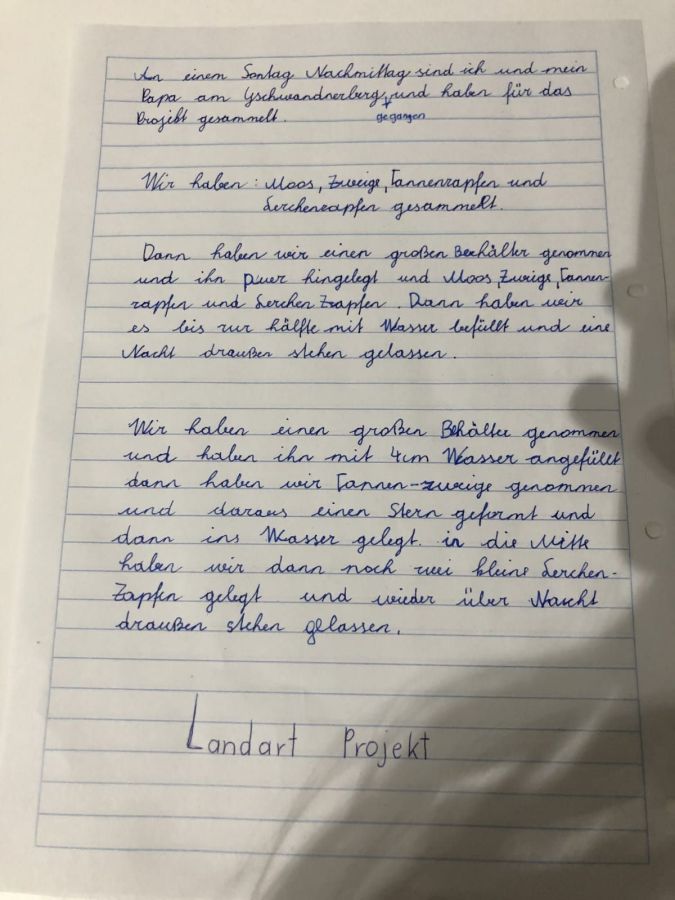 An einem Sontag Nachmittag sind ich und mein
Papa am Gschwandnerberg und haben für das
gegangen
Projekt gesammelt.
Wir haben: Moos, Zweige, Tannenzapfen und
Lerchenzapfen gesammelt.
Dann haben wir einen großen Behälter genommen
und ihn hingelegt und Moos, Zweige, Tannen-
zapfen und Lerchen Zapfen. Dann haben wir
es bis zur hälfte mit Wasser befüllt und eine
Nacht draußen stehen gelassen.
Wir haben einen großen Behälter genommen
und haben ihn mit 4cm Wasser angefüllt
dann haben wir Tannen-zweige genommen
und daraus einen Stern geformt und
dann ins Wasser gelegt. in die Mitte
haben wir dann noch zwei kleine Lerchen-
Zapfen gelegt und wieder über Nacht
draußen stehen gelassen.
Landart Projekt